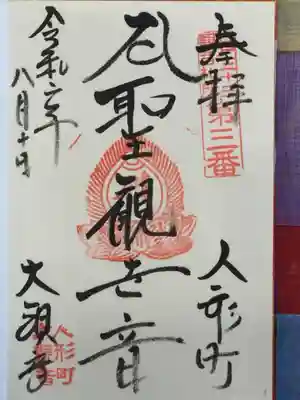 奉拝
第三番
人形町
聖観世音
令和二年
八月十日
大観音
人形町